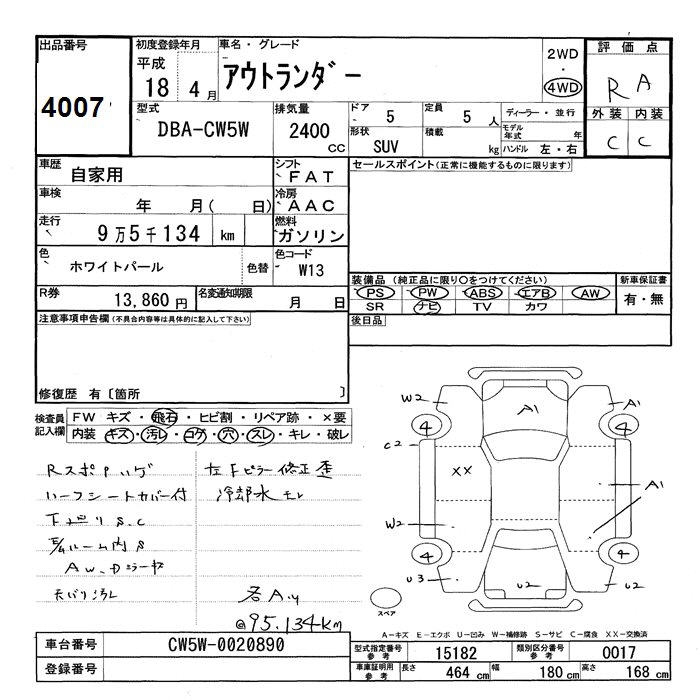 出品番号
4007
初度登録年月
平成
18年 4月
車名・グレード
アウトランダー
2WD
・
4WD
評価点
R A
外装 内装
C C
型式
DBA-CW5W
排気量
2400
CC
ドア
5
形状
SUV
定員
5人
積載
kg
ディーラー・並行
モデル年式 年
ハンドル 左・右
車歴
自家用
シフト
FAT
車検
年 月( 日)
冷房
AAC
走行
9万5千134 km
燃料
ガソリン
色
ホワイトパール
色替
色コード
W13
R券
13,860円
名変通知期限
月 日
セールスポイント(正常に機能するものに限ります)
装備品(純正品に限り○をつけてください)
PS PW ABS エアB AW
SR ナビ TV カワ
新車保証書
有・無
後日品
注意事項申告欄(不具合内容等は具体的に記入して下さい)
修復歴 有〔箇所 〕
検査員
記入欄
FW キズ・飛石・ヒビ割・リペア跡・×要
内装 キズ・汚レ・コゲ・穴・スレ・キレ・破レ
Rスポイリング
左Fピラー修正歪
ハーフシートカバー付
冷却水モレ
下廻りS.C
ルーム内S
AW、ドラーヤ
天バリ汚レ
各A.u
@95.134km
W2
A1
A1
4
4
C2
XX
A1
W2
4
4
U3
U2
U2
スペア
A-キズ E-エクボ U-凹み W-補修跡 S-サビ C-腐食 XX-交換済
車台番号
CW5W-0020890
登録番号
型式指定番号
参考
15182
類別区分番号
参考
0017
車庫証明用
参考
長さ
464 cm
幅
180 cm
高さ
168 cm